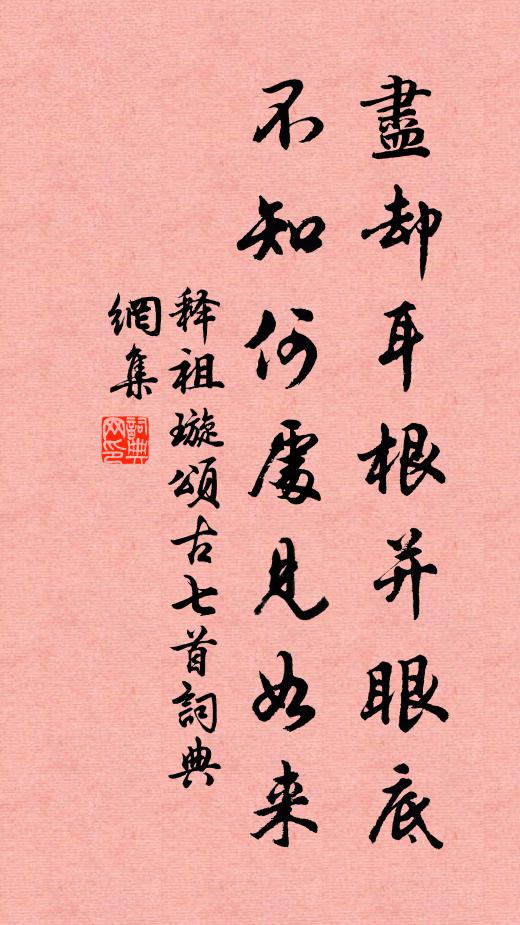 盡却耳根并眼底
不知何處見如来
释祖璇頌古七首詞典
網集
詞典
网印